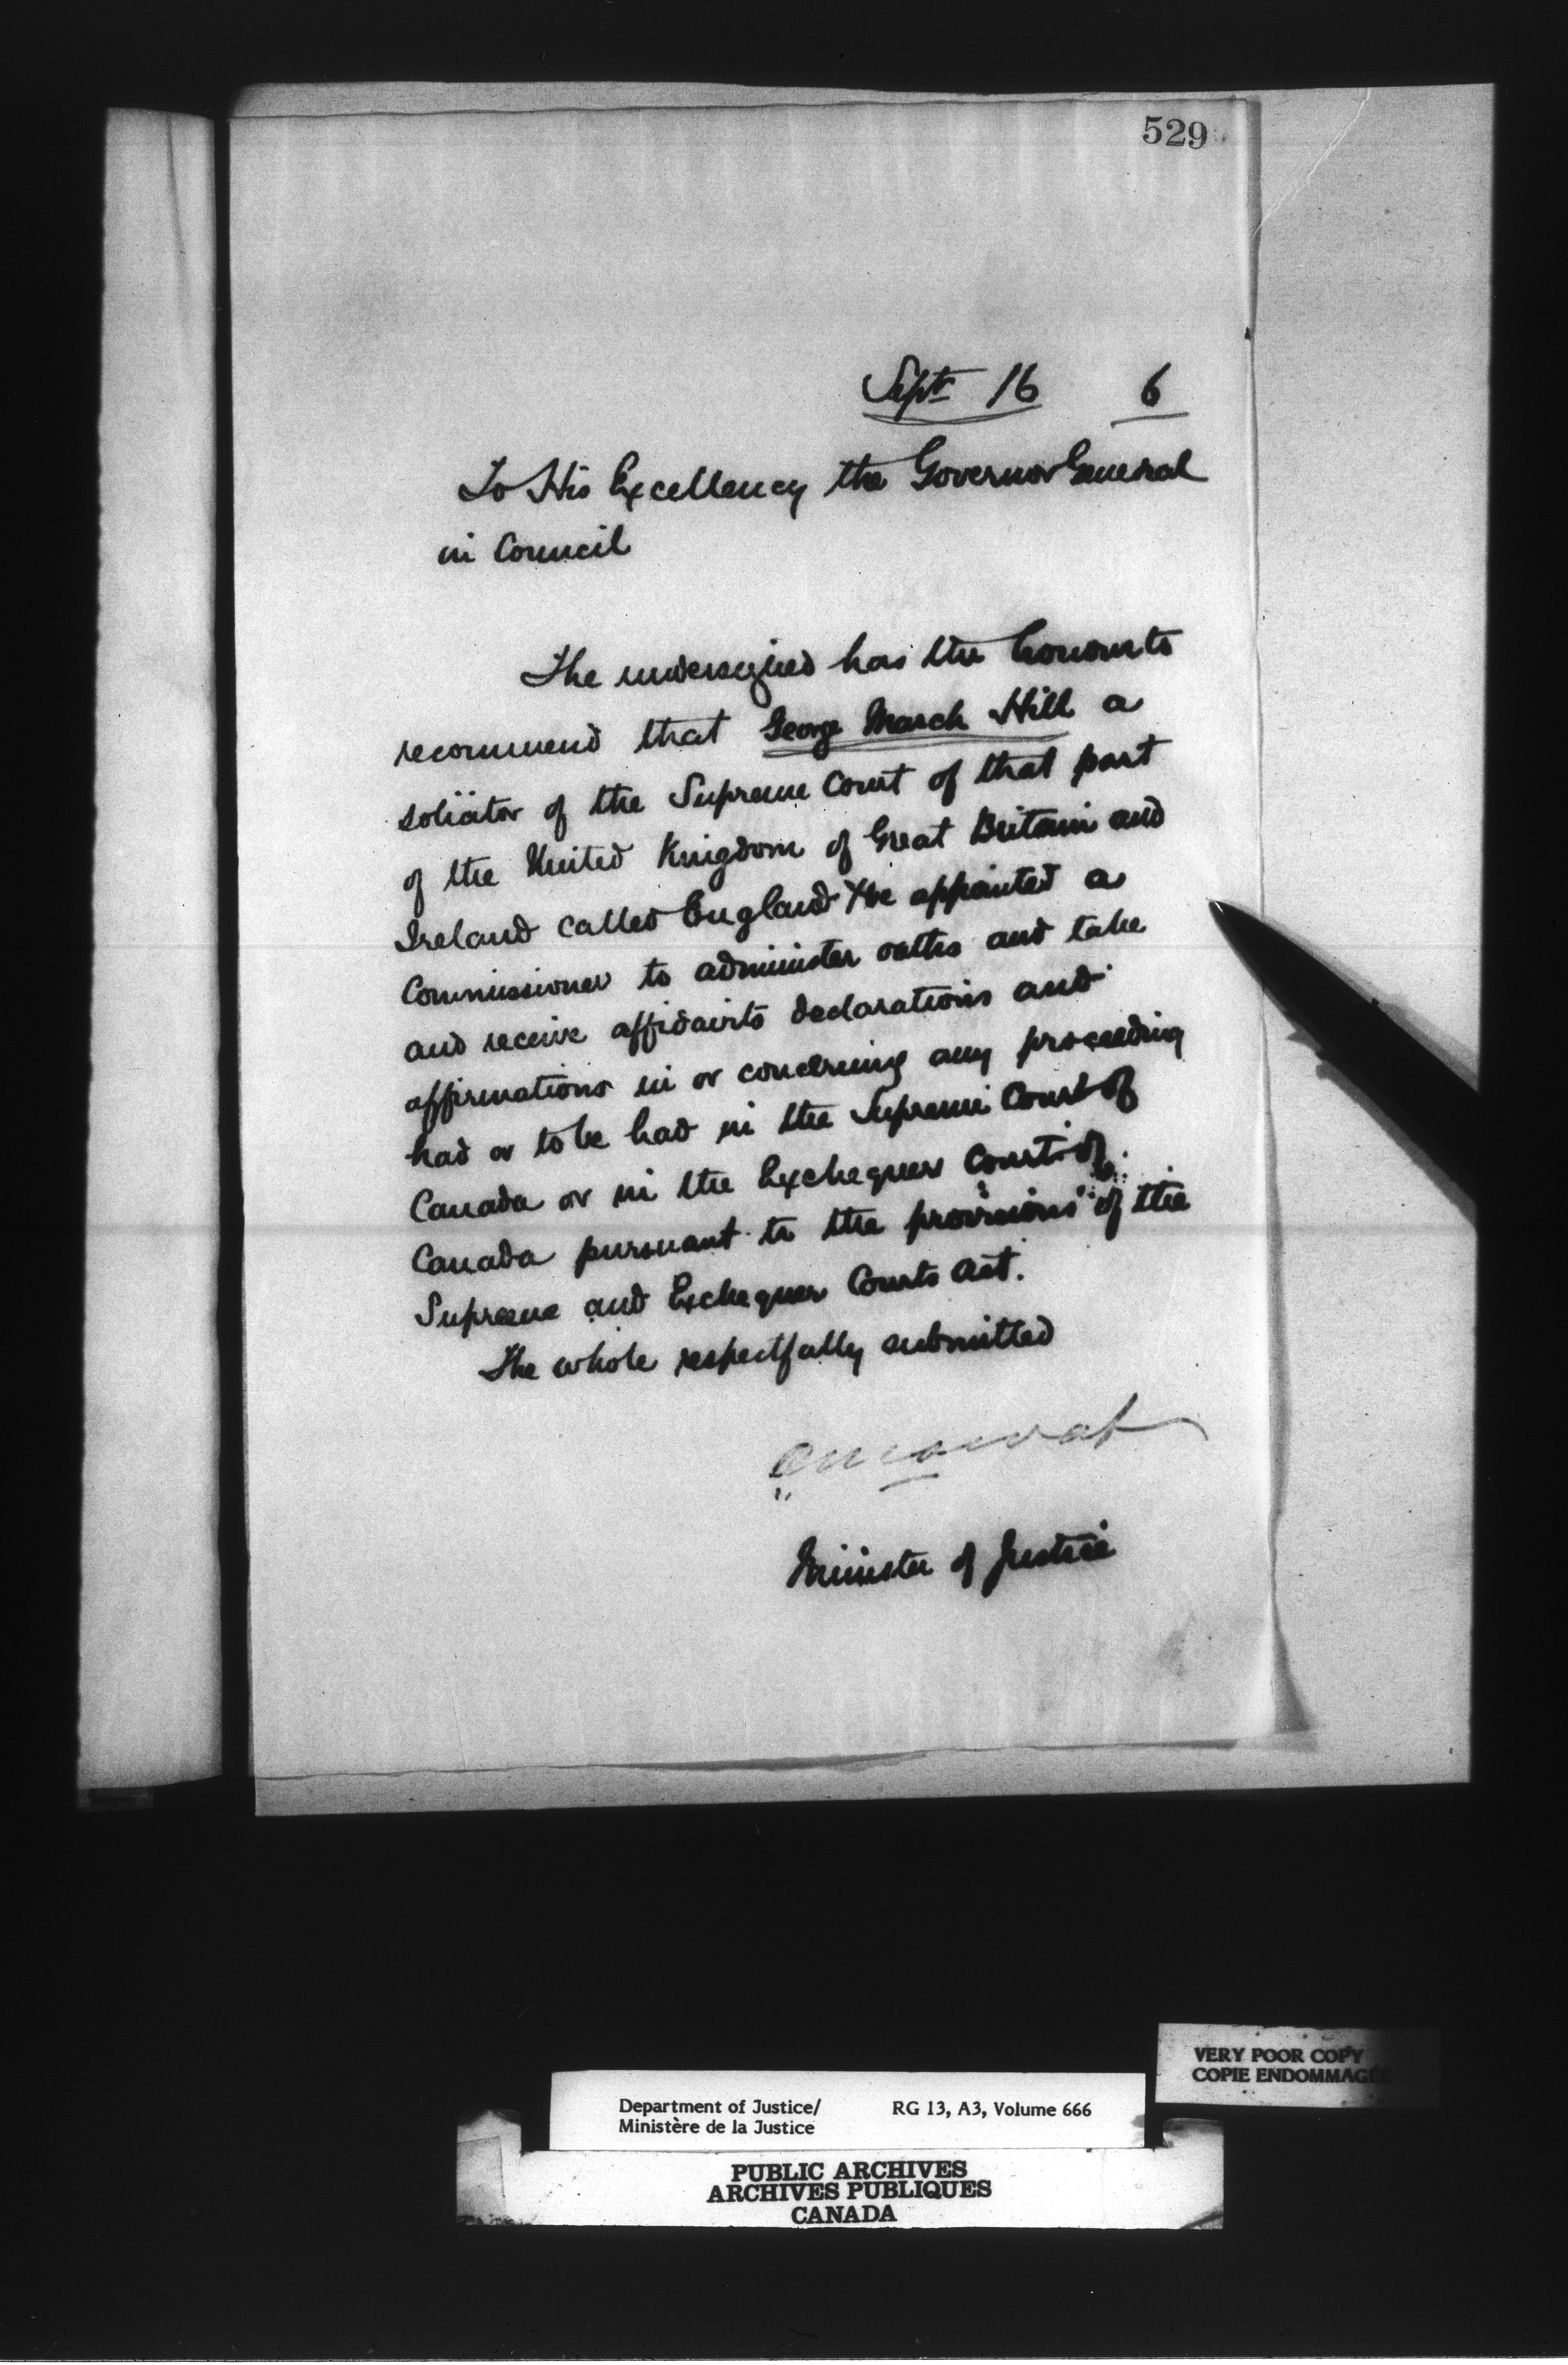 529
Septr 16 6
To His Excellency the Governor General
in Council
The undersigned has the honour to
recommend that George March Hill a
solicitor of the Supreme Court of that part
of the United Kingdom of Great Britain and
Ireland called England be appointed a
Commissioner to administer oaths and take
and receive affidavits declarations and
affirmations in or concerning any proceeding
had or to be had in the Supreme Court of
Canada or in the Exchequer Court of
Canada pursuant to the provisions of the
Supreme and Exchequer Courts Act.
The whole respectfully submitted
O Mowat
Minister of Justice
VERY POOR COPY
COPIE ENDOMMAGÉE
Department of Justice/ RG 13, A3, Volume 666
Ministère de la Justice
PUBLIC ARCHIVES
ARCHIVES PUBLIQUES
CANADA